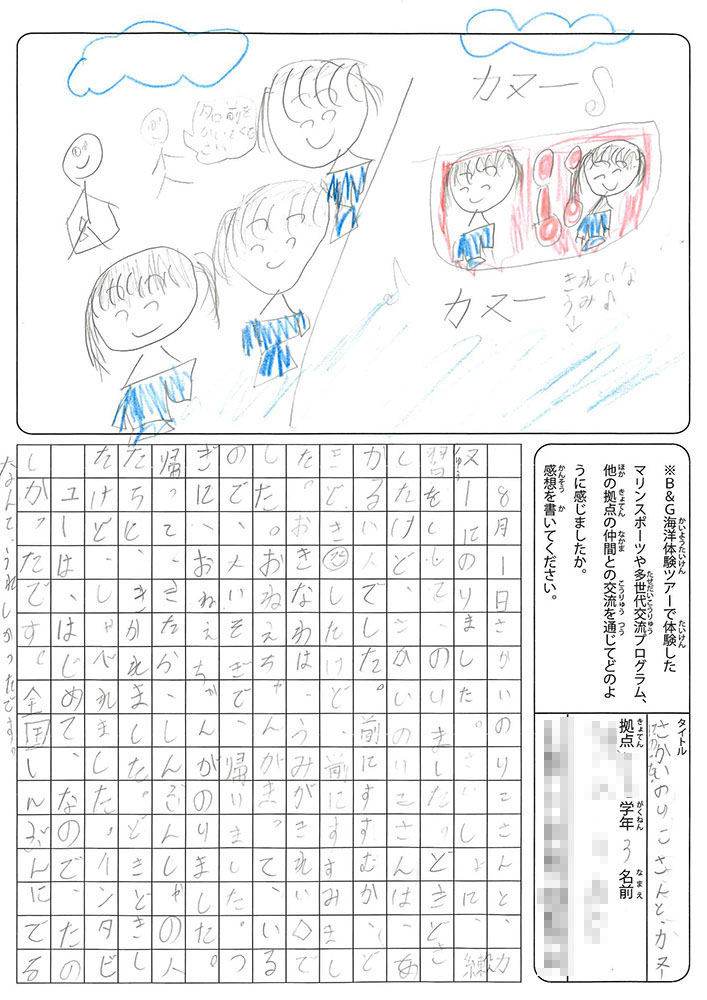 カヌー♪
名前をかいてください
きれいなうみ♪
カヌー
※B&G海洋体験ツアーで体験した
マリンスポーツや多世代交流プログラム、
他の拠点の仲間との交流を通じてどのよ
うに感じましたか。
感想を書いてください。
タイトル
さかいのりこさんと、カヌー
拠点
学年 3 名前
8月1日さかいのりこさんと、カ
ヌーにのりました。さいしょに、練
習を
のりました。どきど
したけど、さかいのりこさんは、あ
かるい人でした。前にすすむか、ど
きどき
したけど、前にすすみまし
た。おきなわは、うみがきれいで
した。おねえちゃんが、まっている
ので、いそいで、帰りました。つ
ぎに、おねえちゃんがのりました。
帰って、きた
しゃの人
たちに、きかれました。どきどきし
たけど、しゃべれました。インタビ
ューは、はじめてなので、たの
しかったです。全国しんぶんにでる
なんて、うれしかったです。